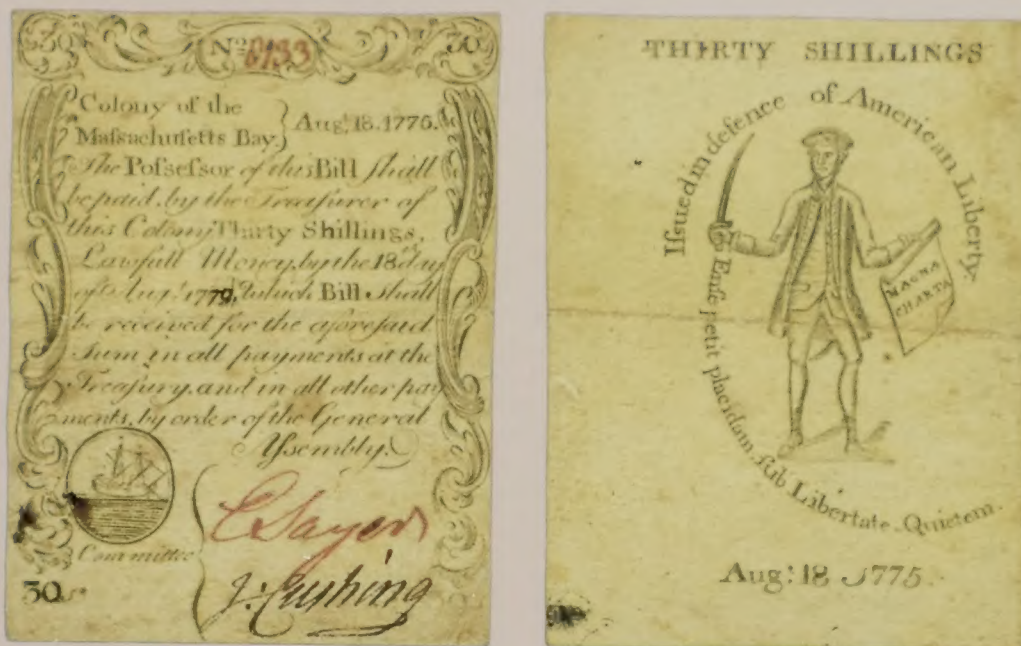 30 No 6133 30
Colony of the
Maſsachuſetts Bay. } Augt. 18. 1775.
The Poſseſsor of this Bill ſhall
be paid by the Treaſurer of
this Colony Thirty Shillings,
Lawfull Money, by the 18 day
of Augt. 1779, which Bill ſhall
be received for the aforeſaid
Sum in all payments at the
Treaſury and in all other pay
ments, by order of the General
Aſsembly.
Committee
C Sayer
J: Cuſhing
30s
THIRTY SHILLINGS
Iſsued in defence of American Liberty.
MAGNA
CHARTA
Enſe petit placidam ſub Libertate Quietem.
Aug: 18 1775.